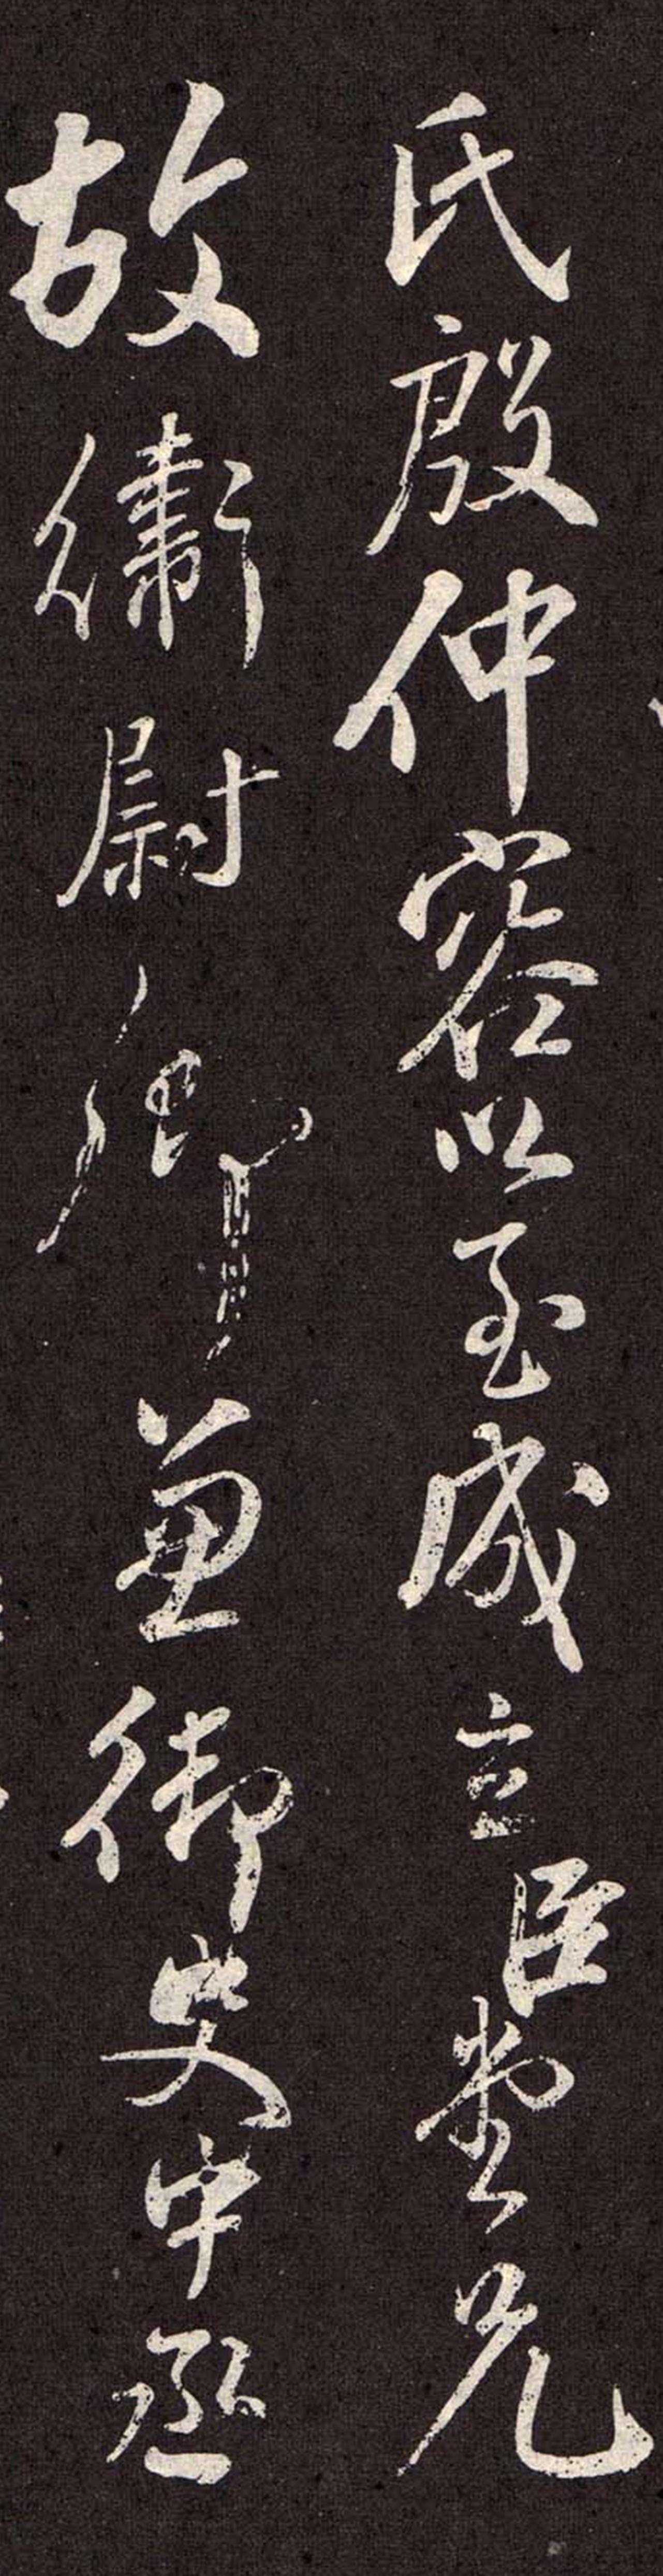 氏殷仲容以至成立臣堂兄
故衛尉卿兼御史中丞